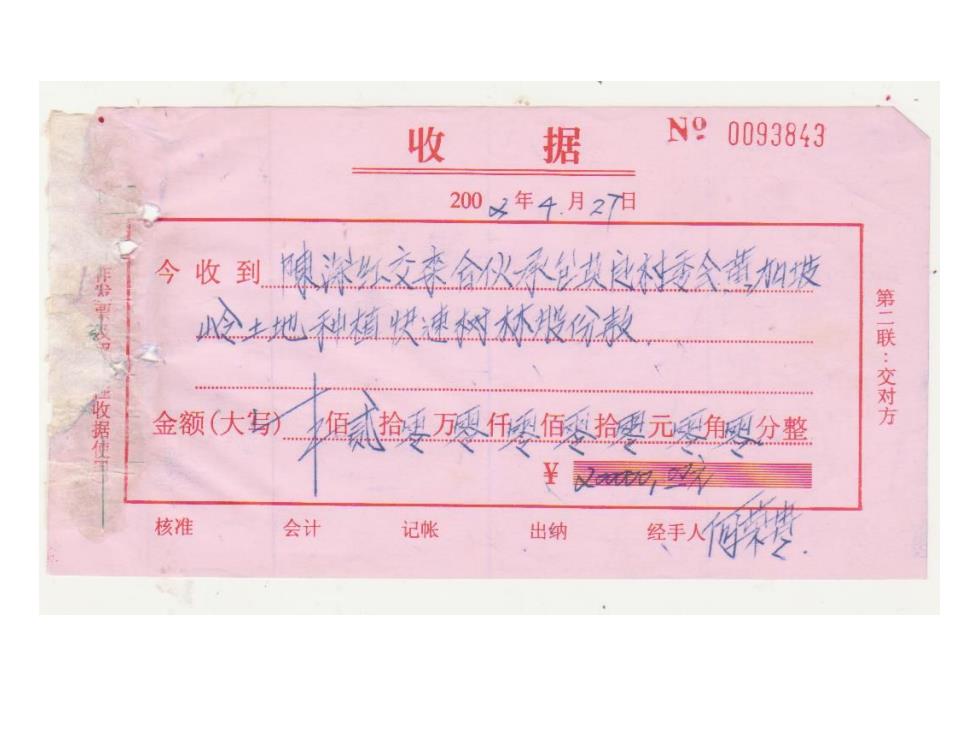 收 据
№ 0093843
2002年4月27日
今收到 陳深红交来合伙承包 村委会 加坡
岭土地种植快速树林股份款.
金额(大写) 佰贰拾零万零仟零佰零拾零元零角零分整
¥
核准 会计 记帐 出纳 经手人 何荣贵.
第二联:交对方
收据使